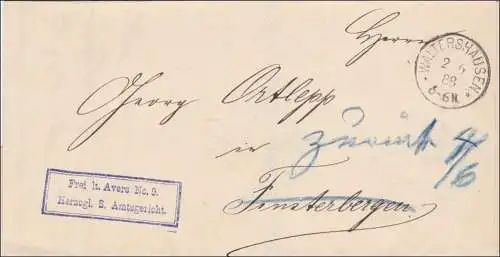 Herrn
WALTERSHAUSEN
2 6
88
5-6N.
Georg Ortlepp
in zurück 4/6
Frei lt. Avers No. 9.
Herzogl. S. Amtsgericht.
Finsterbergen.